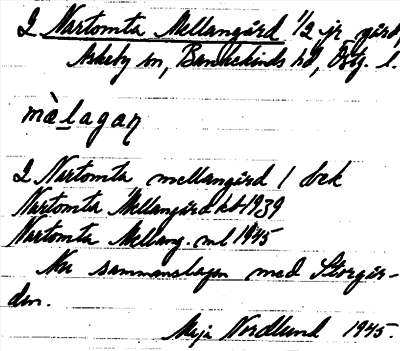 2 Nartomta Mellangård 1/2 jr, gård,
Askeby sn, Bankekinds hd, Östg. l.
mὰlagaɳ
2 Nartomta mellangård 1 bek
Nartomta Mellangård kb 1939
Nartomta Mellang. ml 1945
Nu sammanslagen med Storgår-
den.
Maja Nordlund 1945.